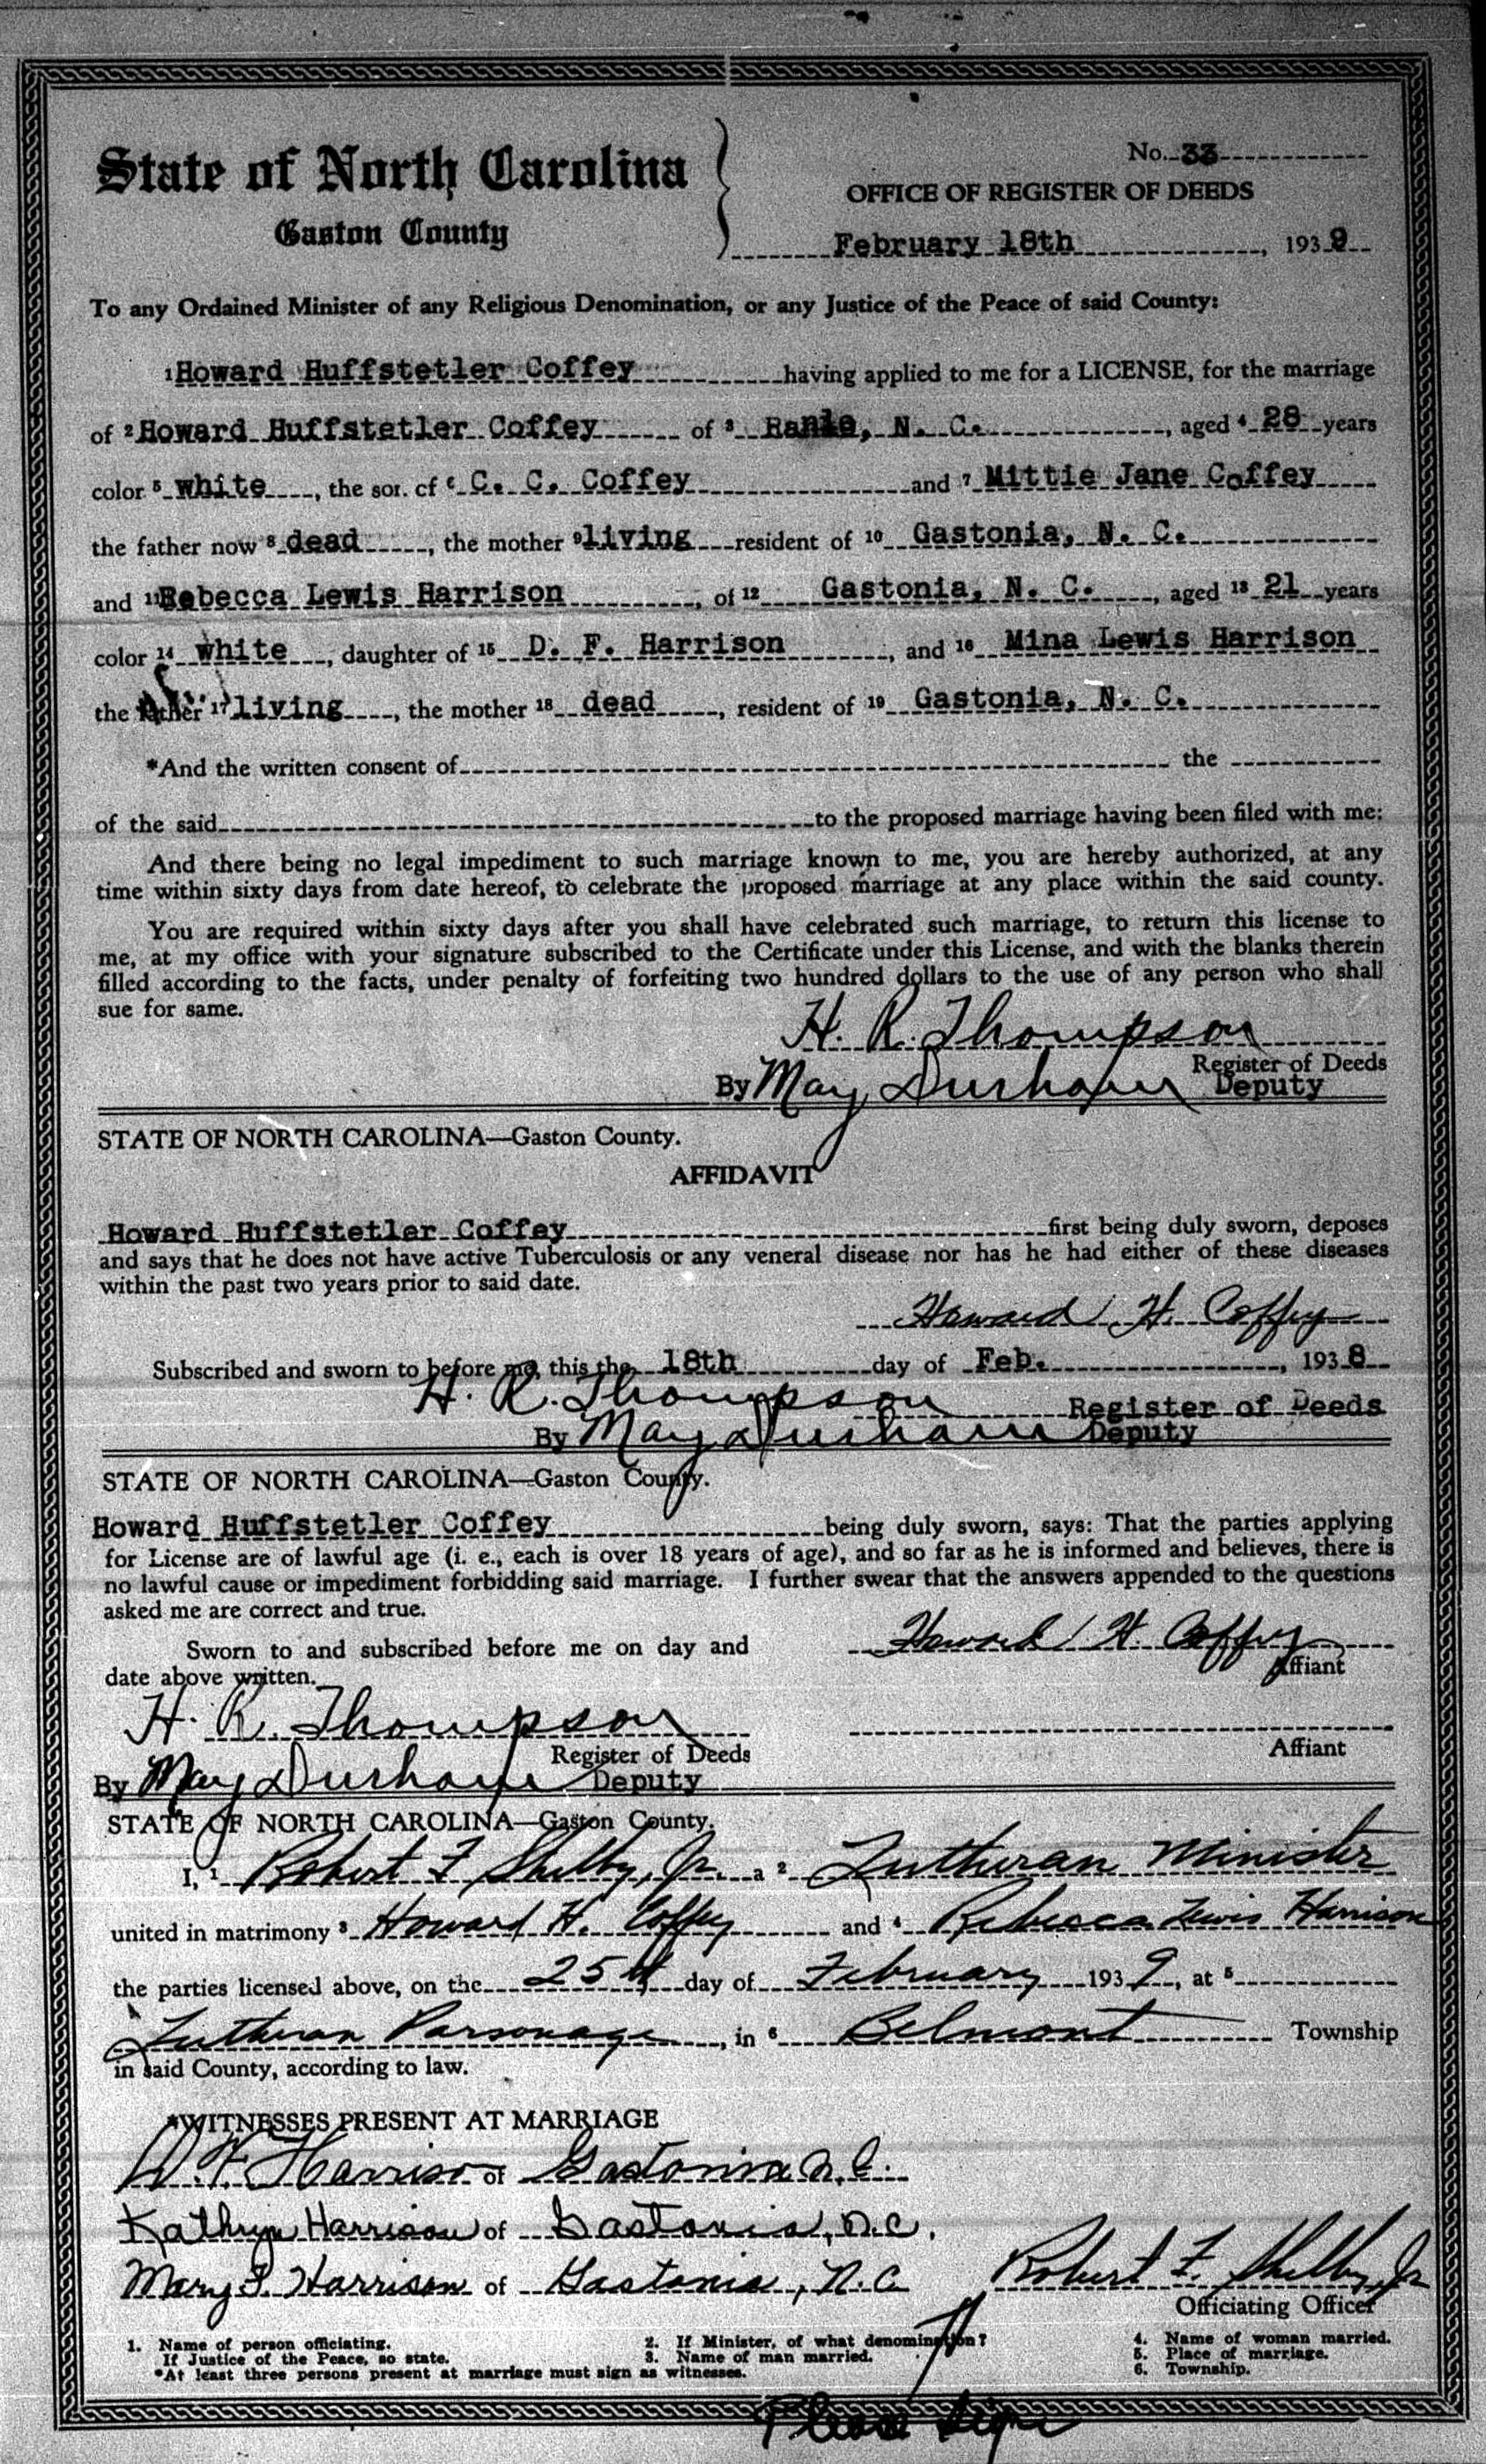 State of North Carolina
Gaston County
No. 33
OFFICE OF REGISTER OF DEEDS
February 18th, 1939
To any Ordained Minister of any Religious Denomination, or any Justice of the Peace of said County:
1 Howard Huffstetler Coffey having applied to me for a LICENSE, for the marriage
of 2 Howard Huffstetler Coffey of 3 Ranlo, N. C., aged 4 28 years
color 5 white, the son of 6 C. C. Coffey and 7 Mittie Jane Coffey
the father now 8 dead, the mother 9 living resident of 10 Gastonia, N. C.
and 11 Rebecca Lewis Harrison, of 12 Gastonia, N. C., aged 13 21 years
color 14 white, daughter of 15 D. F. Harrison, and 16 Mina Lewis Harrison
the father 17 living, the mother 18 dead, resident of 19 Gastonia, N. C.
*And the written consent of the
of the said to the proposed marriage having been filed with me:
And there being no legal impediment to such marriage known to me, you are hereby authorized, at any
time within sixty days from date hereof, to celebrate the proposed marriage at any place within the said county.
You are required within sixty days after you shall have celebrated such marriage, to return this license to
me, at my office with your signature subscribed to the Certificate under this License, and with the blanks therein
filled according to the facts, under penalty of forfeiting two hundred dollars to the use of any person who shall
sue for same.
H. R. Thompson
Register of Deeds
By May Durham Deputy
STATE OF NORTH CAROLINA—Gaston County.
AFFIDAVIT
Howard Huffstetler Coffey first being duly sworn, deposes
and says that he does not have active Tuberculosis or any veneral disease nor has he had either of these diseases
within the past two years prior to said date.
Howard H. Coffey
Subscribed and sworn to before me, this the 18th day of Feb., 1938
H. R. Thompson Register of Deeds
By May Durham Deputy
STATE OF NORTH CAROLINA—Gaston County.
Howard Huffstetler Coffey being duly sworn, says: That the parties applying
for License are of lawful age (i. e., each is over 18 years of age), and so far as he is informed and believes, there is
no lawful cause or impediment forbidding said marriage. I further swear that the answers appended to the questions
asked me are correct and true.
Sworn to and subscribed before me on day and
date above written.
Howard H. Coffey
Affiant
H. R. Thompson
Register of Deeds
Affiant
By May Durham Deputy
STATE OF NORTH CAROLINA—Gaston County.
I, 1 Robert F Shelby, Jr. a 2 Lutheran Minister
united in matrimony 3 Howard H. Coffey and 4 Rebecca Lewis Harrison
the parties licensed above, on the 25th day of February 1939, at 5
Lutheran Parsonage, in 6 Belmont Township
in said County, according to law.
*WITNESSES PRESENT AT MARRIAGE
D. F. Harrison of Gastonia N. C.
Kathryn Harrison of Gastonia, N.C.
Mary L. Harrison of Gastonia, N.C.
Robert F. Shelby, Jr
Officiating Officer
1. Name of person officiating.
If Justice of the Peace, so state.
*At least three persons present at marriage must sign as witnesses.
2. If Minister, of what denomination?
3. Name of man married.
4. Name of woman married.
5. Place of marriage.
6. Township.
Please sign